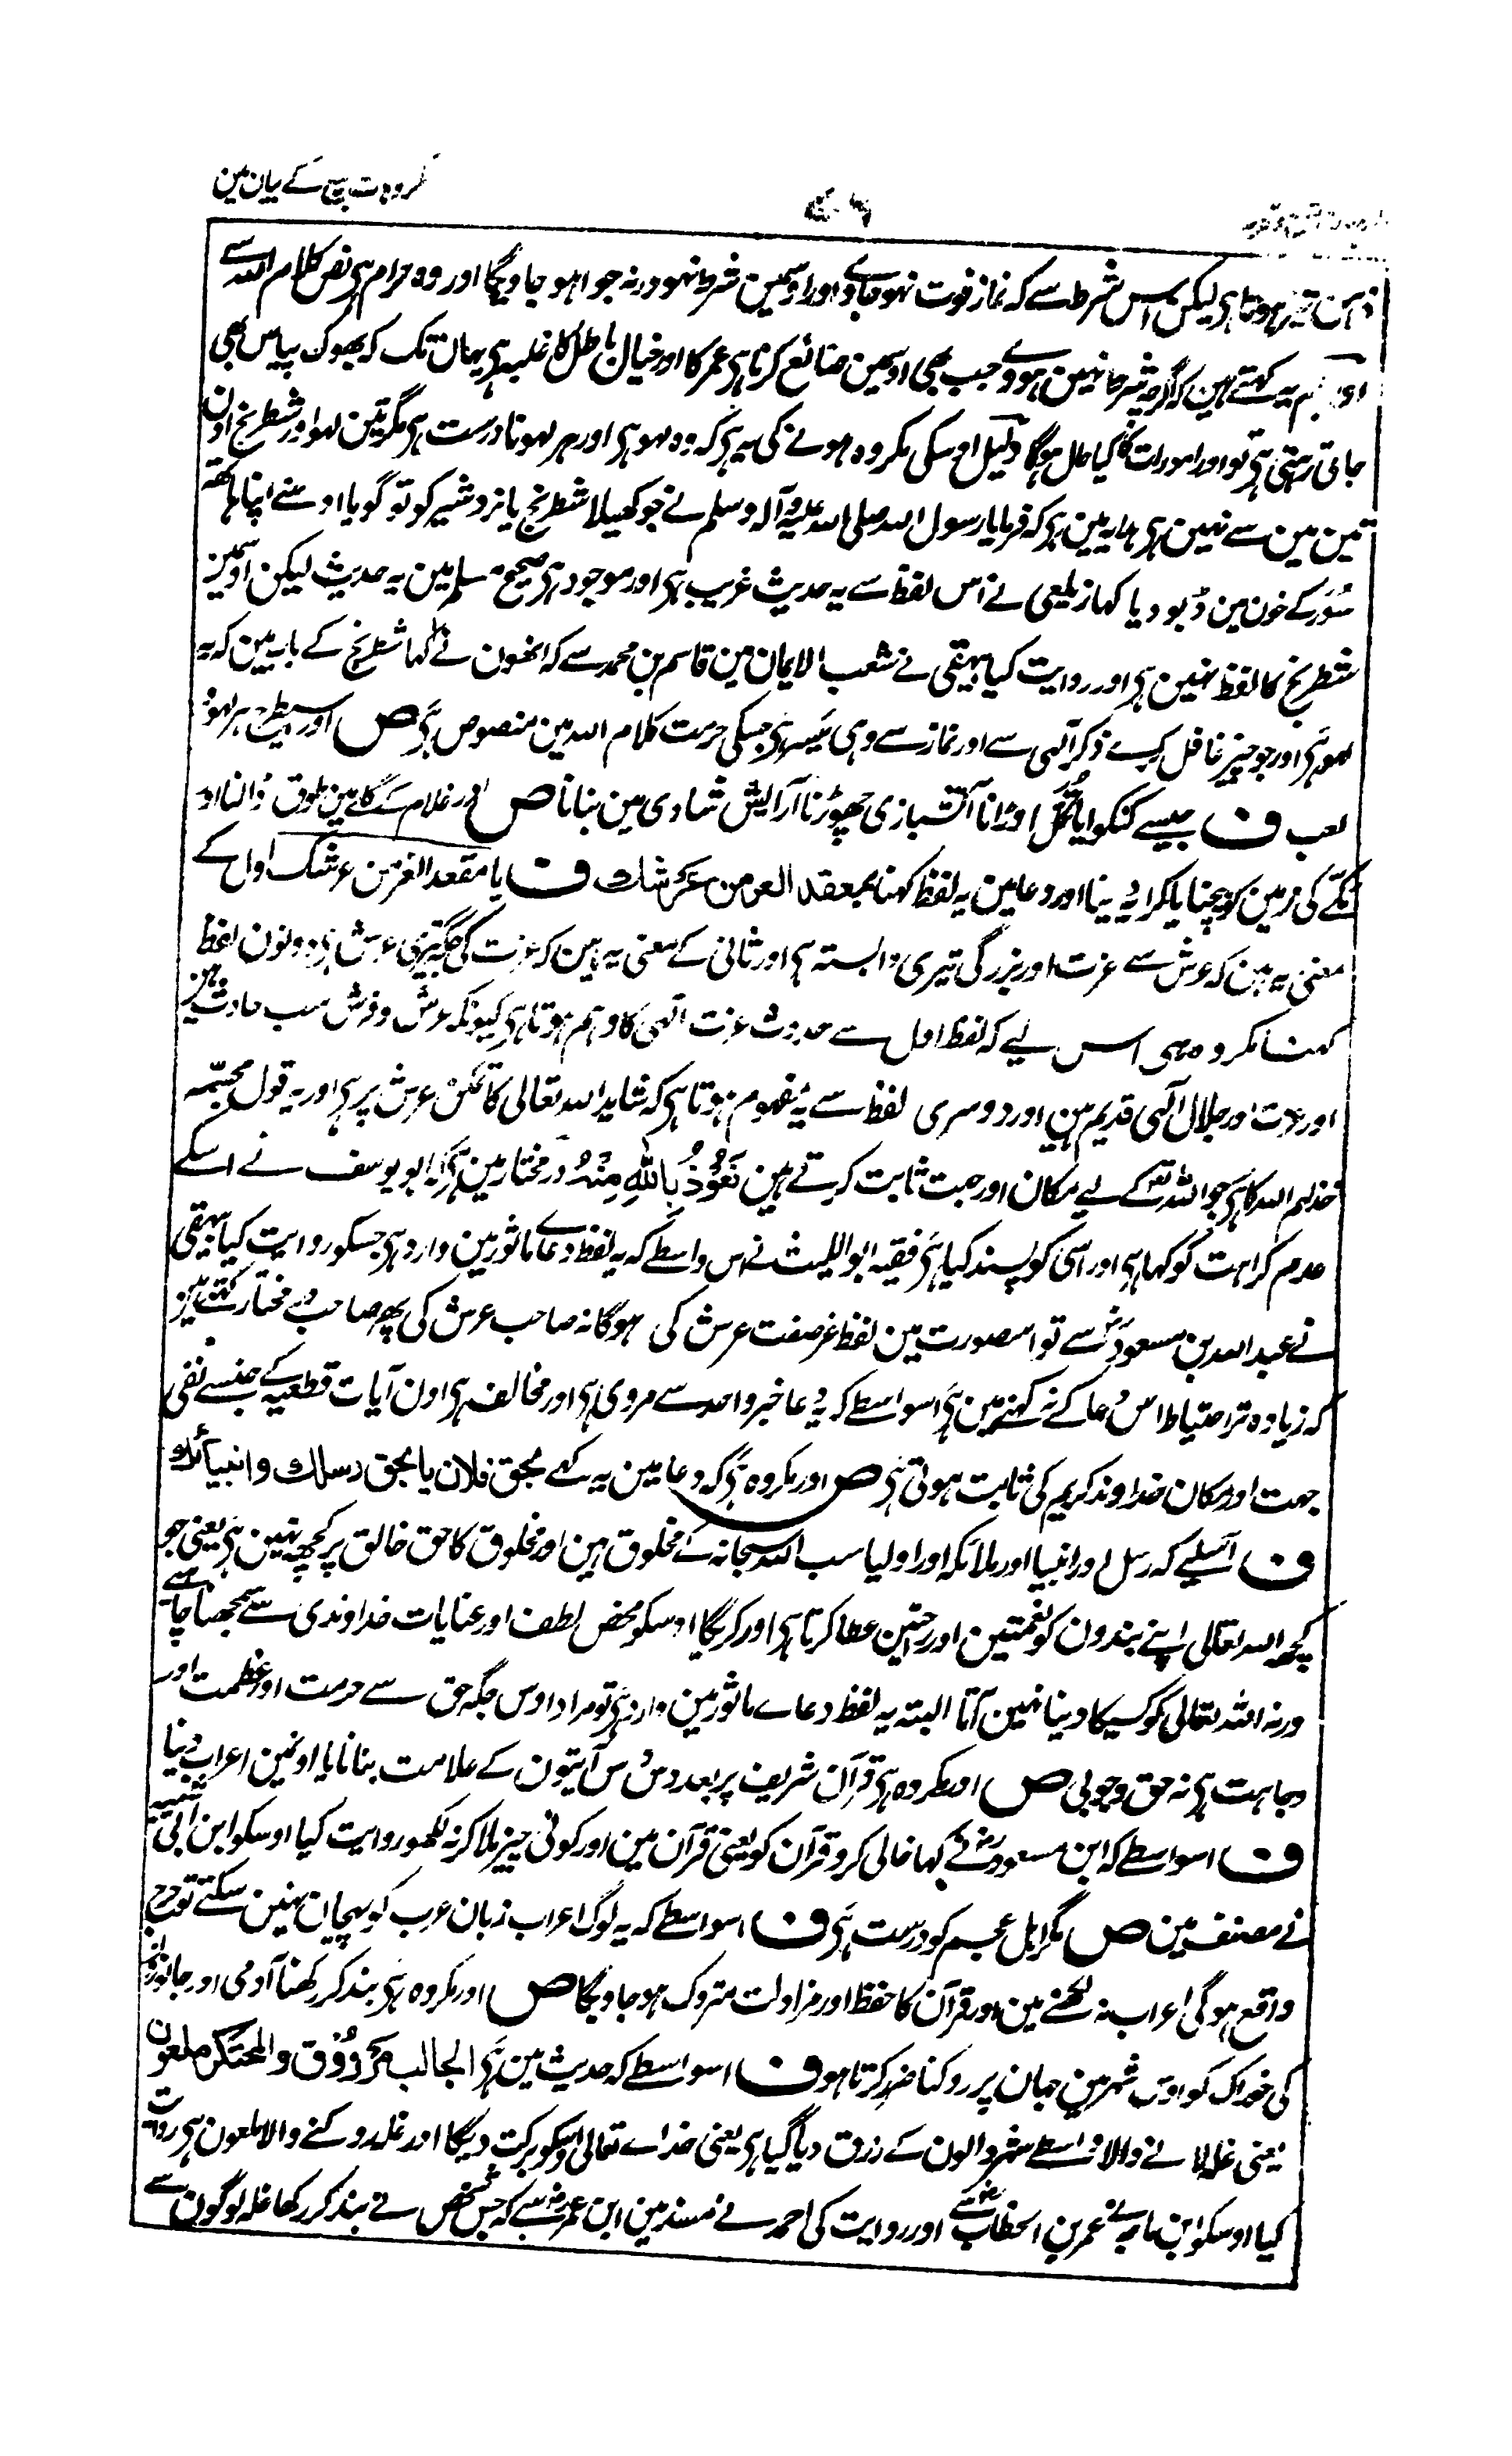 مکروہات بیع کے بیان مین
ذہن تیز ہوتا ہی لیکن اس شرط سے کہ نماز فوت نہو جاوے اور اوسمین شرط نہو ورنہ جوا ہو جاویگا اور وہ حرام ہی نص کلام اللہ سے
ہم یہ کہتے ہین کہ اگرچہ شرط نہین ہووے جب بھی اوسمین ضائع کرنا ہی عمر کا اور خیال باطل کا غلبہ ہی یہان تک کہ بھوک پیاس بھی
جاتی رہتی ہی تو اور امورات کا کیا حال ہوگا دلیل اوسکی مکروہ ہونے کی یہ ہی کہ وہ لہو ہی اور ہر لہو نادرست ہی مگر تین لہو اور شطرنج اون
تین مین سے نہین ہی ہدایہ مین ہی کہ فرمایا رسول اللہ صلی اللہ علیہ وآلہ وسلم نے جو کھیلا شطرنج یا نردشیر کو تو گویا اوسنے اپنا ہاتھ
سُوَر کے خون مین ڈبو دیا کہا زیلعی نے اس لفظ سے یہ حدیث غریب ہی اور موجود ہی صحیح مسلم مین یہ حدیث لیکن اوسمین
شطرنج کا لفظ نہین ہی اور روایت کیا بیہقی نے شعب الایمان مین قاسم بن محمد سے کہ انھون نے کہا شطرنج کے باب مین کہ یہ
لہو ہی اور جو چیز غافل کرے ذکر الٰہی سے اور نماز سے وہی میسر ہی جسکی حرمت کلام اللہ مین منصوص ہی ص اور اسیطرح ہر لہو
لعب ف جیسے کنکوا یا تکل اوڑانا آتشبازی چھوڑنا آرایش شادی مین بنانا ص اور غلام کے گلے مین طوق ڈالنا اور
مکّے کی زمین کو بیچنا یا کرایہ دینا اور دعا مین یہ لفظ کہنا بمعقد العز من عرشک ف یا مقعد العز من عرشک اول کے
معنی یہ ہین کہ عرش سے عزت اور بزرگی تیری وابستہ ہی اور ثانی کے معنی یہ ہین کہ عزت کی جگہ تیری عرش ہی دونون لفظ
کہنا مکروہ ہی اس لیے کہ لفظ اول سے حدوث عزت الٰہی کا وہم ہوتا ہی کیونکہ عرش و فرش سب حادث ہین
اور عزت اور جلال الٰہی قدیم ہین اور دوسری لفظ سے یہ مفہوم ہوتا ہی کہ شاید اللہ تعالی کا تمکن عرش پر ہی اور یہ قول مجسّمہ
خذلہم اللہ کا ہی جو اللہ تعہ کے لیے مکان اور جہت ثابت کرتے ہین نَعُوْذُ بِاللہِ مِنْہُ درمختار مین ہی کہ ابو یوسف نے اسکے
عدم کراہت کو کہا ہی اور اسی کو پسند کیا ہی فقیہ ابواللیث نے اس واسطے کہ یہ لفظ دعاے ماثور مین وارد ہی جسکو روایت کیا بیہقی
نے عبداللہ بن مسعود رض سے تو اسصورت مین لفظ عز صفت عرش کی ہوگا نہ صاحب عرش کی پھر صاحب در مختار کہتے ہین
کہ زیادہ تر احتیاط اس دعا کے نہ کہنے مین ہی اسواسطے کہ یہ دعا خبر واحد سے مروی ہی اور مخالف ہی اون آیات قطعیہ کے جنسے نفی
جہت اور مکان خداوند کریم کی ثابت ہوتی ہی ص اور مکروہ ہی کہ دعا مین یہ کہے بحق فلان یا بحق رسلک و انبیائک
ف اسلیے کہ رسل اور انبیا اور ملائکہ اور اولیا سب اللہ سبحانہ کے مخلوق ہین اور مخلوق کا حق خالق پر کچھ نہین ہی یعنی جو
کچھ اللہ تعالی اپنے بندون کو نعمتین اور رحمتین عطا کرتا ہی اور کریگا اوسکو محض لطف اور عنایات خداوندی سے سمجھنا چاہیے
ورنہ اللہ تعالی کو کسیکا دینا نہین آتا البتہ یہ لفظ دعاے ماثور مین وارد ہی تو مراد اوس جگہ حق سے حرمت اور عظمت اور
وجاہت ہی نہ حق وجوبی ص اور مکروہ ہی قرآن شریف پر بعد دس دس آیتون کے علامت بنانا یا اونمین اعراب دینا
ف اسواسطے کہ ابن مسعود رض نے کہا خالی کرو قرآن کو یعنی قرآن مین اور کوئی چیز ملا کر نہ لکھو روایت کیا اوسکو ابن ابی شیبہ
نے مصنف مین ص مگر اہل عجم کو درست ہی ف اسواسطے کہ یہ لوگ اعراب زبان عرب کو پہچان نہین سکتے تو حرج
واقع ہوگی اعراب نہ لکھنے مین اور قرآن کا حفظ اور مزاولت متروک ہو جاویگا ص اور مکروہ ہی بند کر رکھنا آدمی اور جانورون
کی خوراک کو اوس شہر مین جہان پر روکنا ضرر کرتا ہو ف اسواسطے کہ حدیث مین ہی الجالب مرزوق والمحتکر ملعون
یعنی غلہ لانے والا واسطے شہر والون کے رزق دیا گیا ہی یعنی خداے تعالی اوسکو برکت دیگا اور غلہ روکنے والا ملعون ہی روایت
کیا اوسکو ابن ماجہ نے عمر بن الخطاب رض سے اور روایت کی احمد نے مسند مین ابن عمر رض سے کہ جس شخص نے بند کر رکھا غلہ لوگون سے